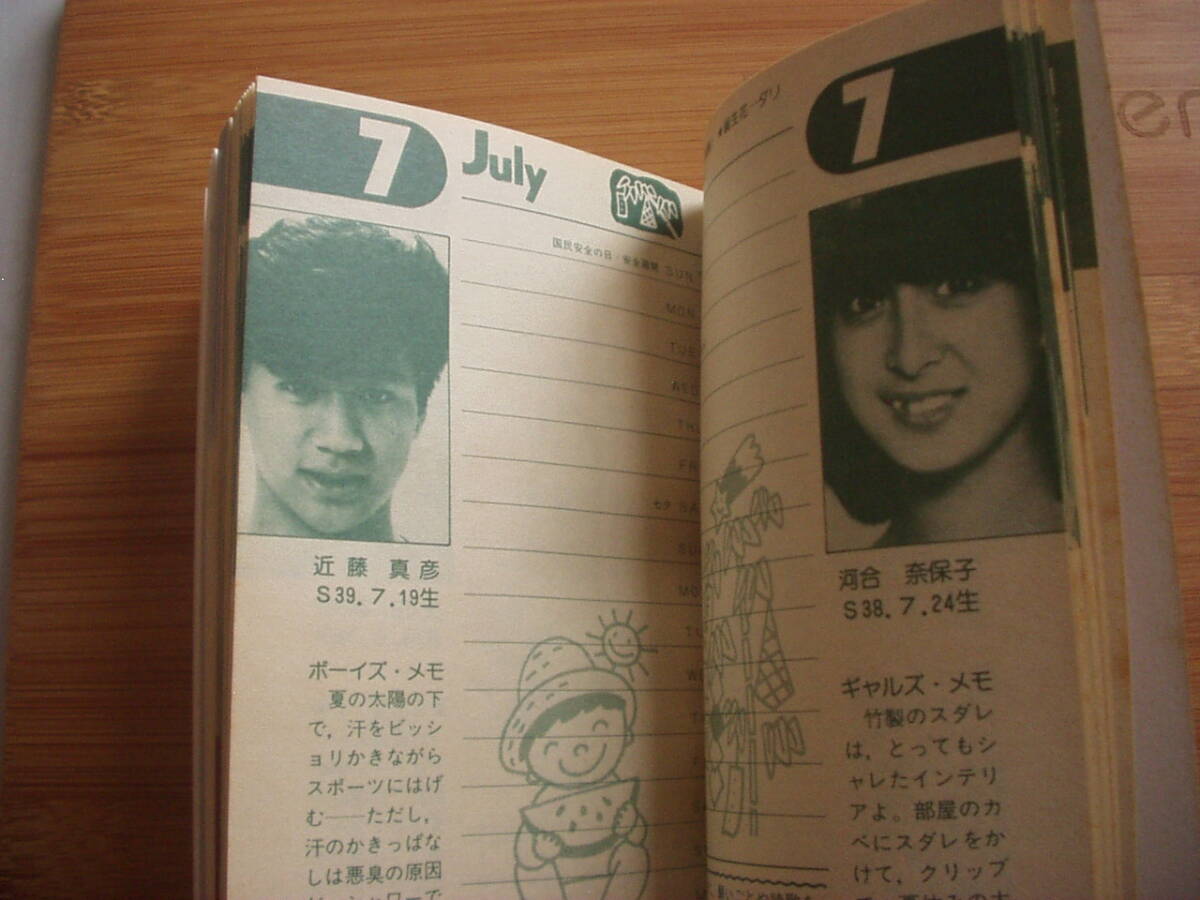 7
July
国民安全の日・安全週間 SUN
MON
TUE
WED
THU
FR
七夕 SA
SU
MO
TU
W
近藤 真彦
S39.7.19生
ボーイズ・メモ
夏の太陽の下
で，汗をビッシ
ョリかきながら
スポーツにはげ
む——ただし，
汗のかきっぱな
しは悪臭の原因
7
河合 奈保子
S38.7.24生
ギャルズ・メモ
竹製のスダレ
は，とってもシ
ャレたインテリ
アよ。部屋のカ
ベにスダレをか
けて，クリップ